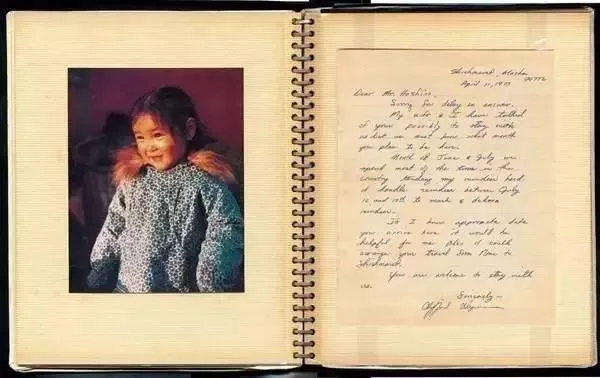 Shishmaref, Alaska
99772
April 11, 1977
Dear Mr. Hoshino,
Sorry for delay in answer.
My wife & I have talked
of your possibly to stay with
us but we must know what month
you plan to be here.
Month of June & July we
spend most of the time in the
country tending my reindeer herd.
reindeer between July
to mark & dehorn
reindeer.
If I have approximate date
you arrive here it would be
helpful for me also I could
arrange your travel from Nome to
Shishmaref.
You are welcome to stay with
us.
Sincerely -
Clifford